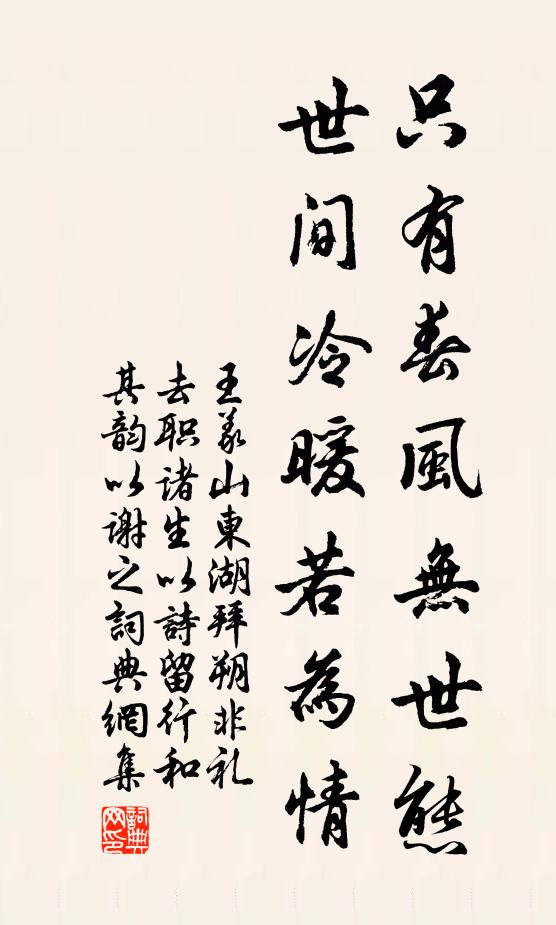 只有春風無世態
世间冷暖若為情
王义山東湖拜朔非礼
去职诸生以詩留行和
其韵以谢之詞典網集
詞典网印